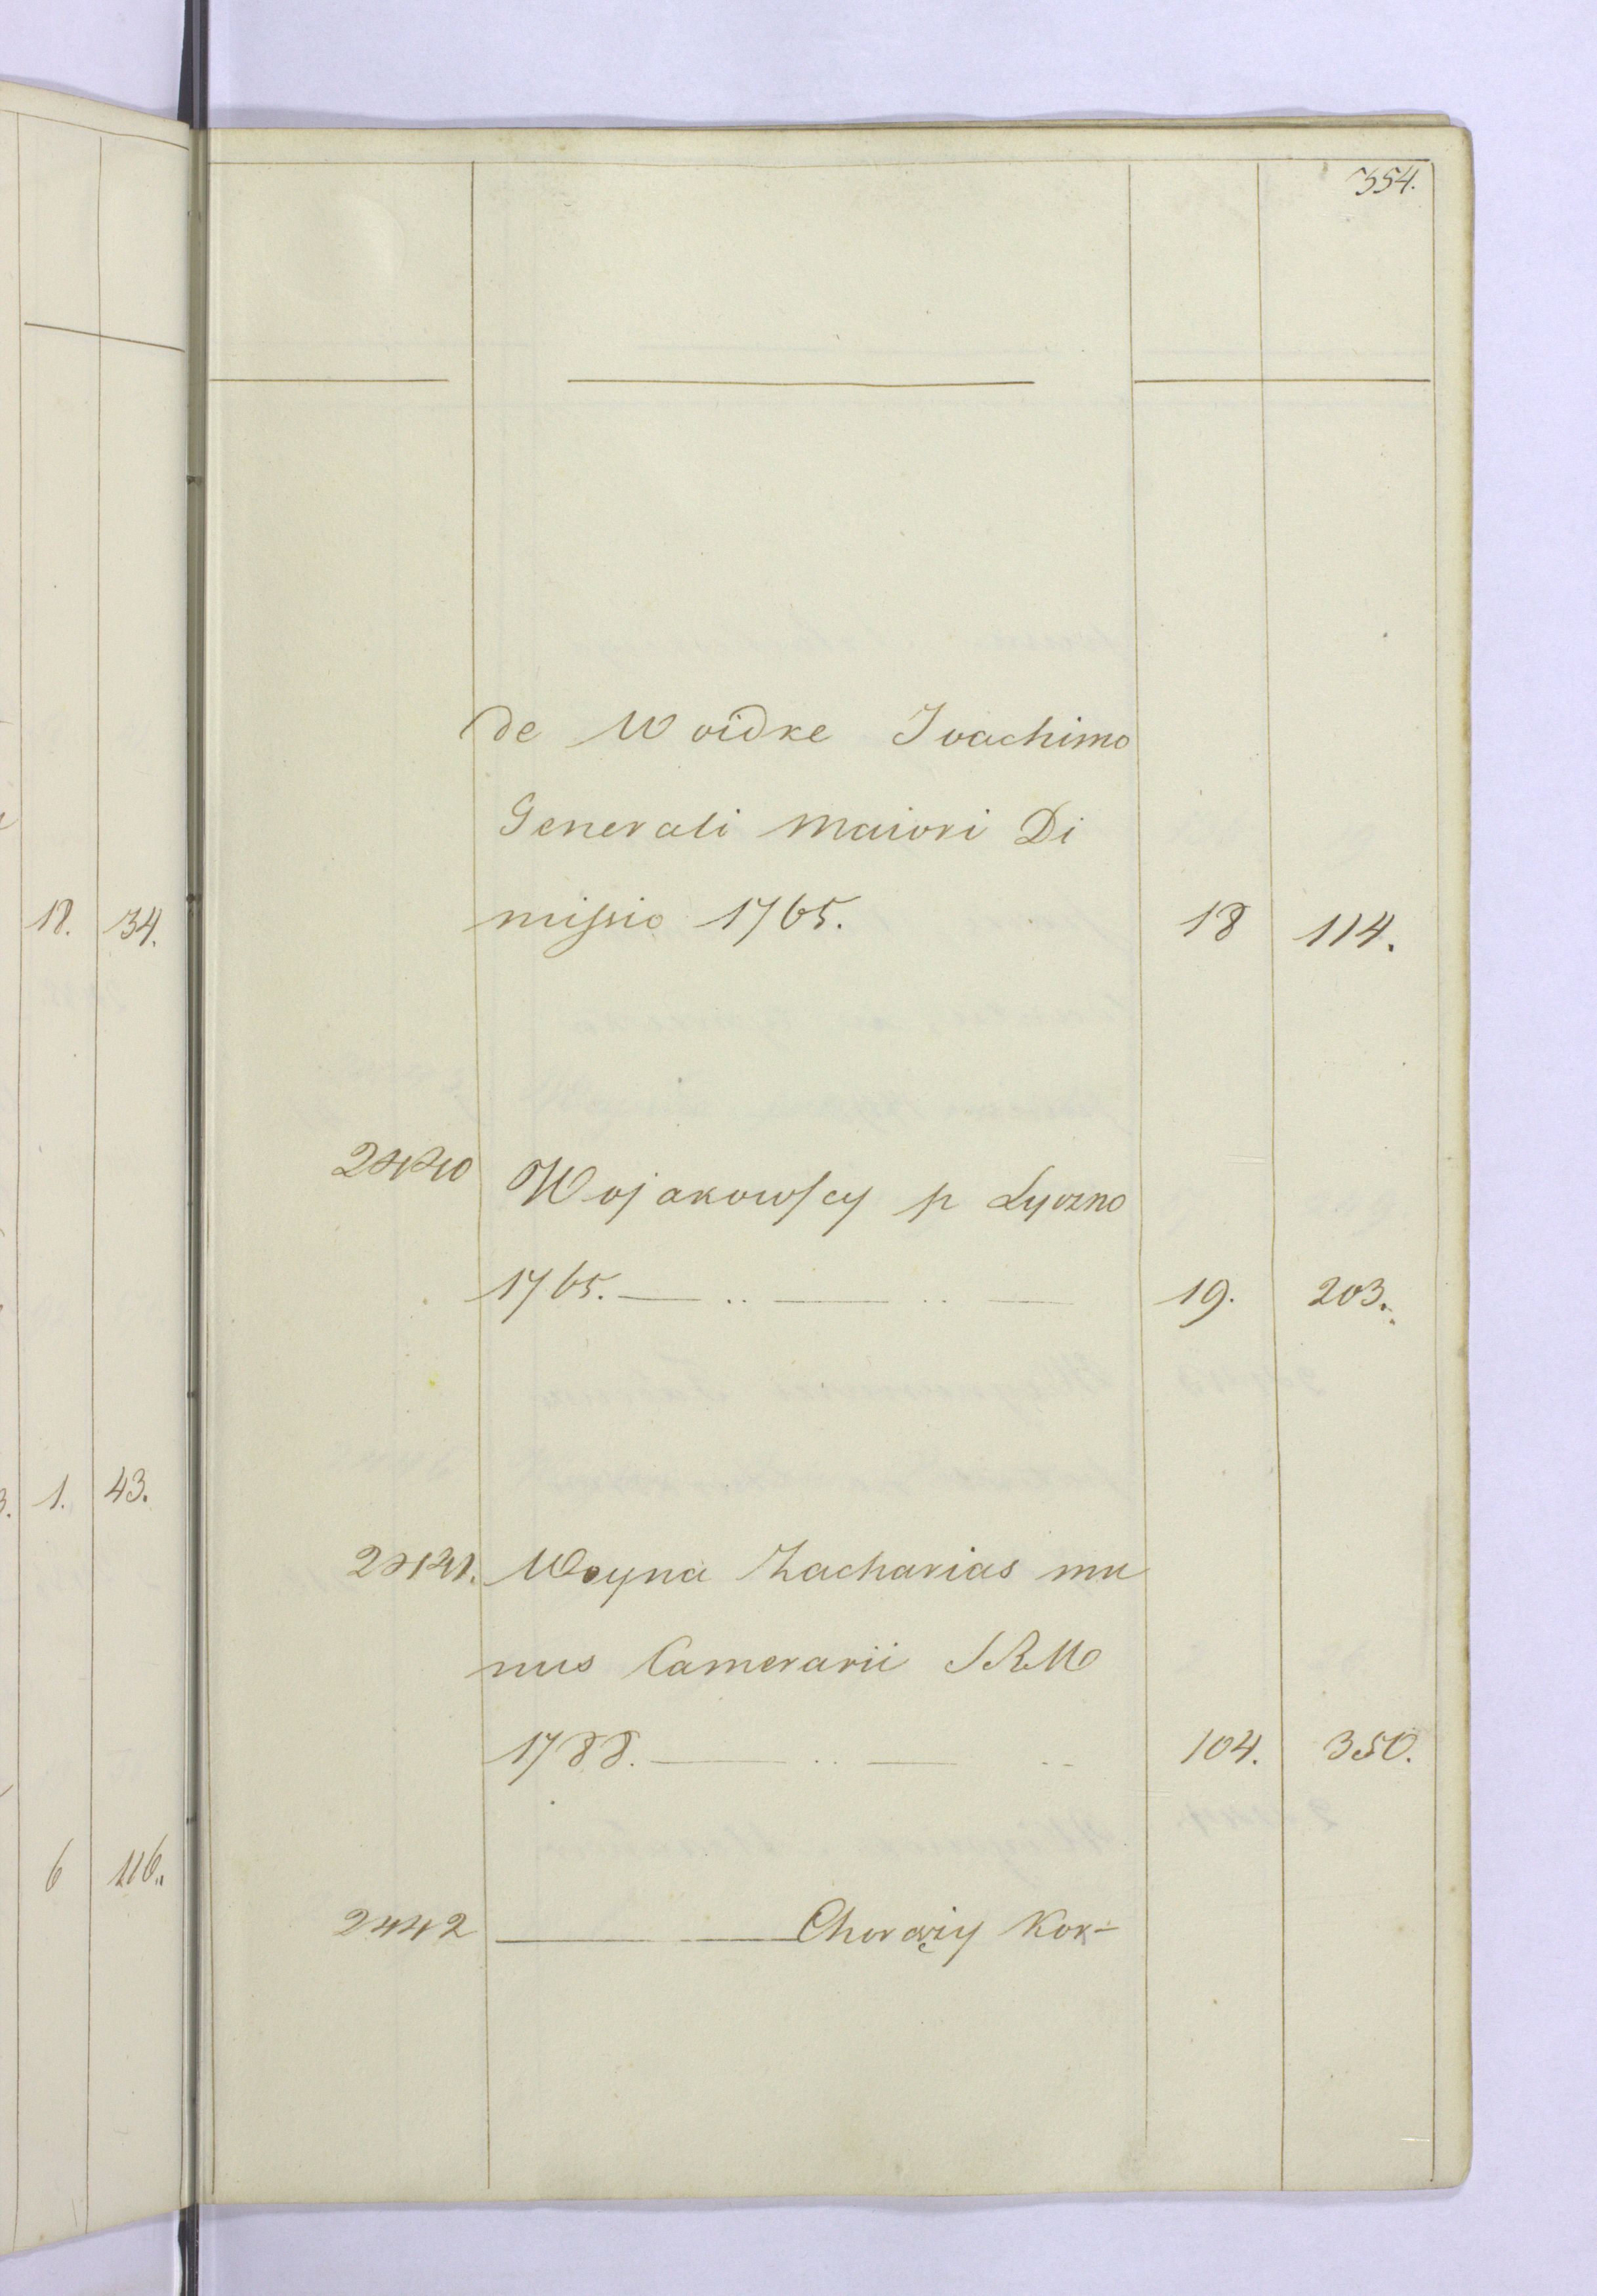 354.
de Woidke Joachimo
Generali Maiori Di
missio 1765. 18 114.
2440 Wojakowscy p Lyczno
1765. — .. — .. — 19. 203.
2441. Woyna Zacharias mu
nus Camerarii SRM
1788. — .. — .. 104. 350.
2442 — — Chorąży Kor-
18. 34.
1. 43.
6 116.